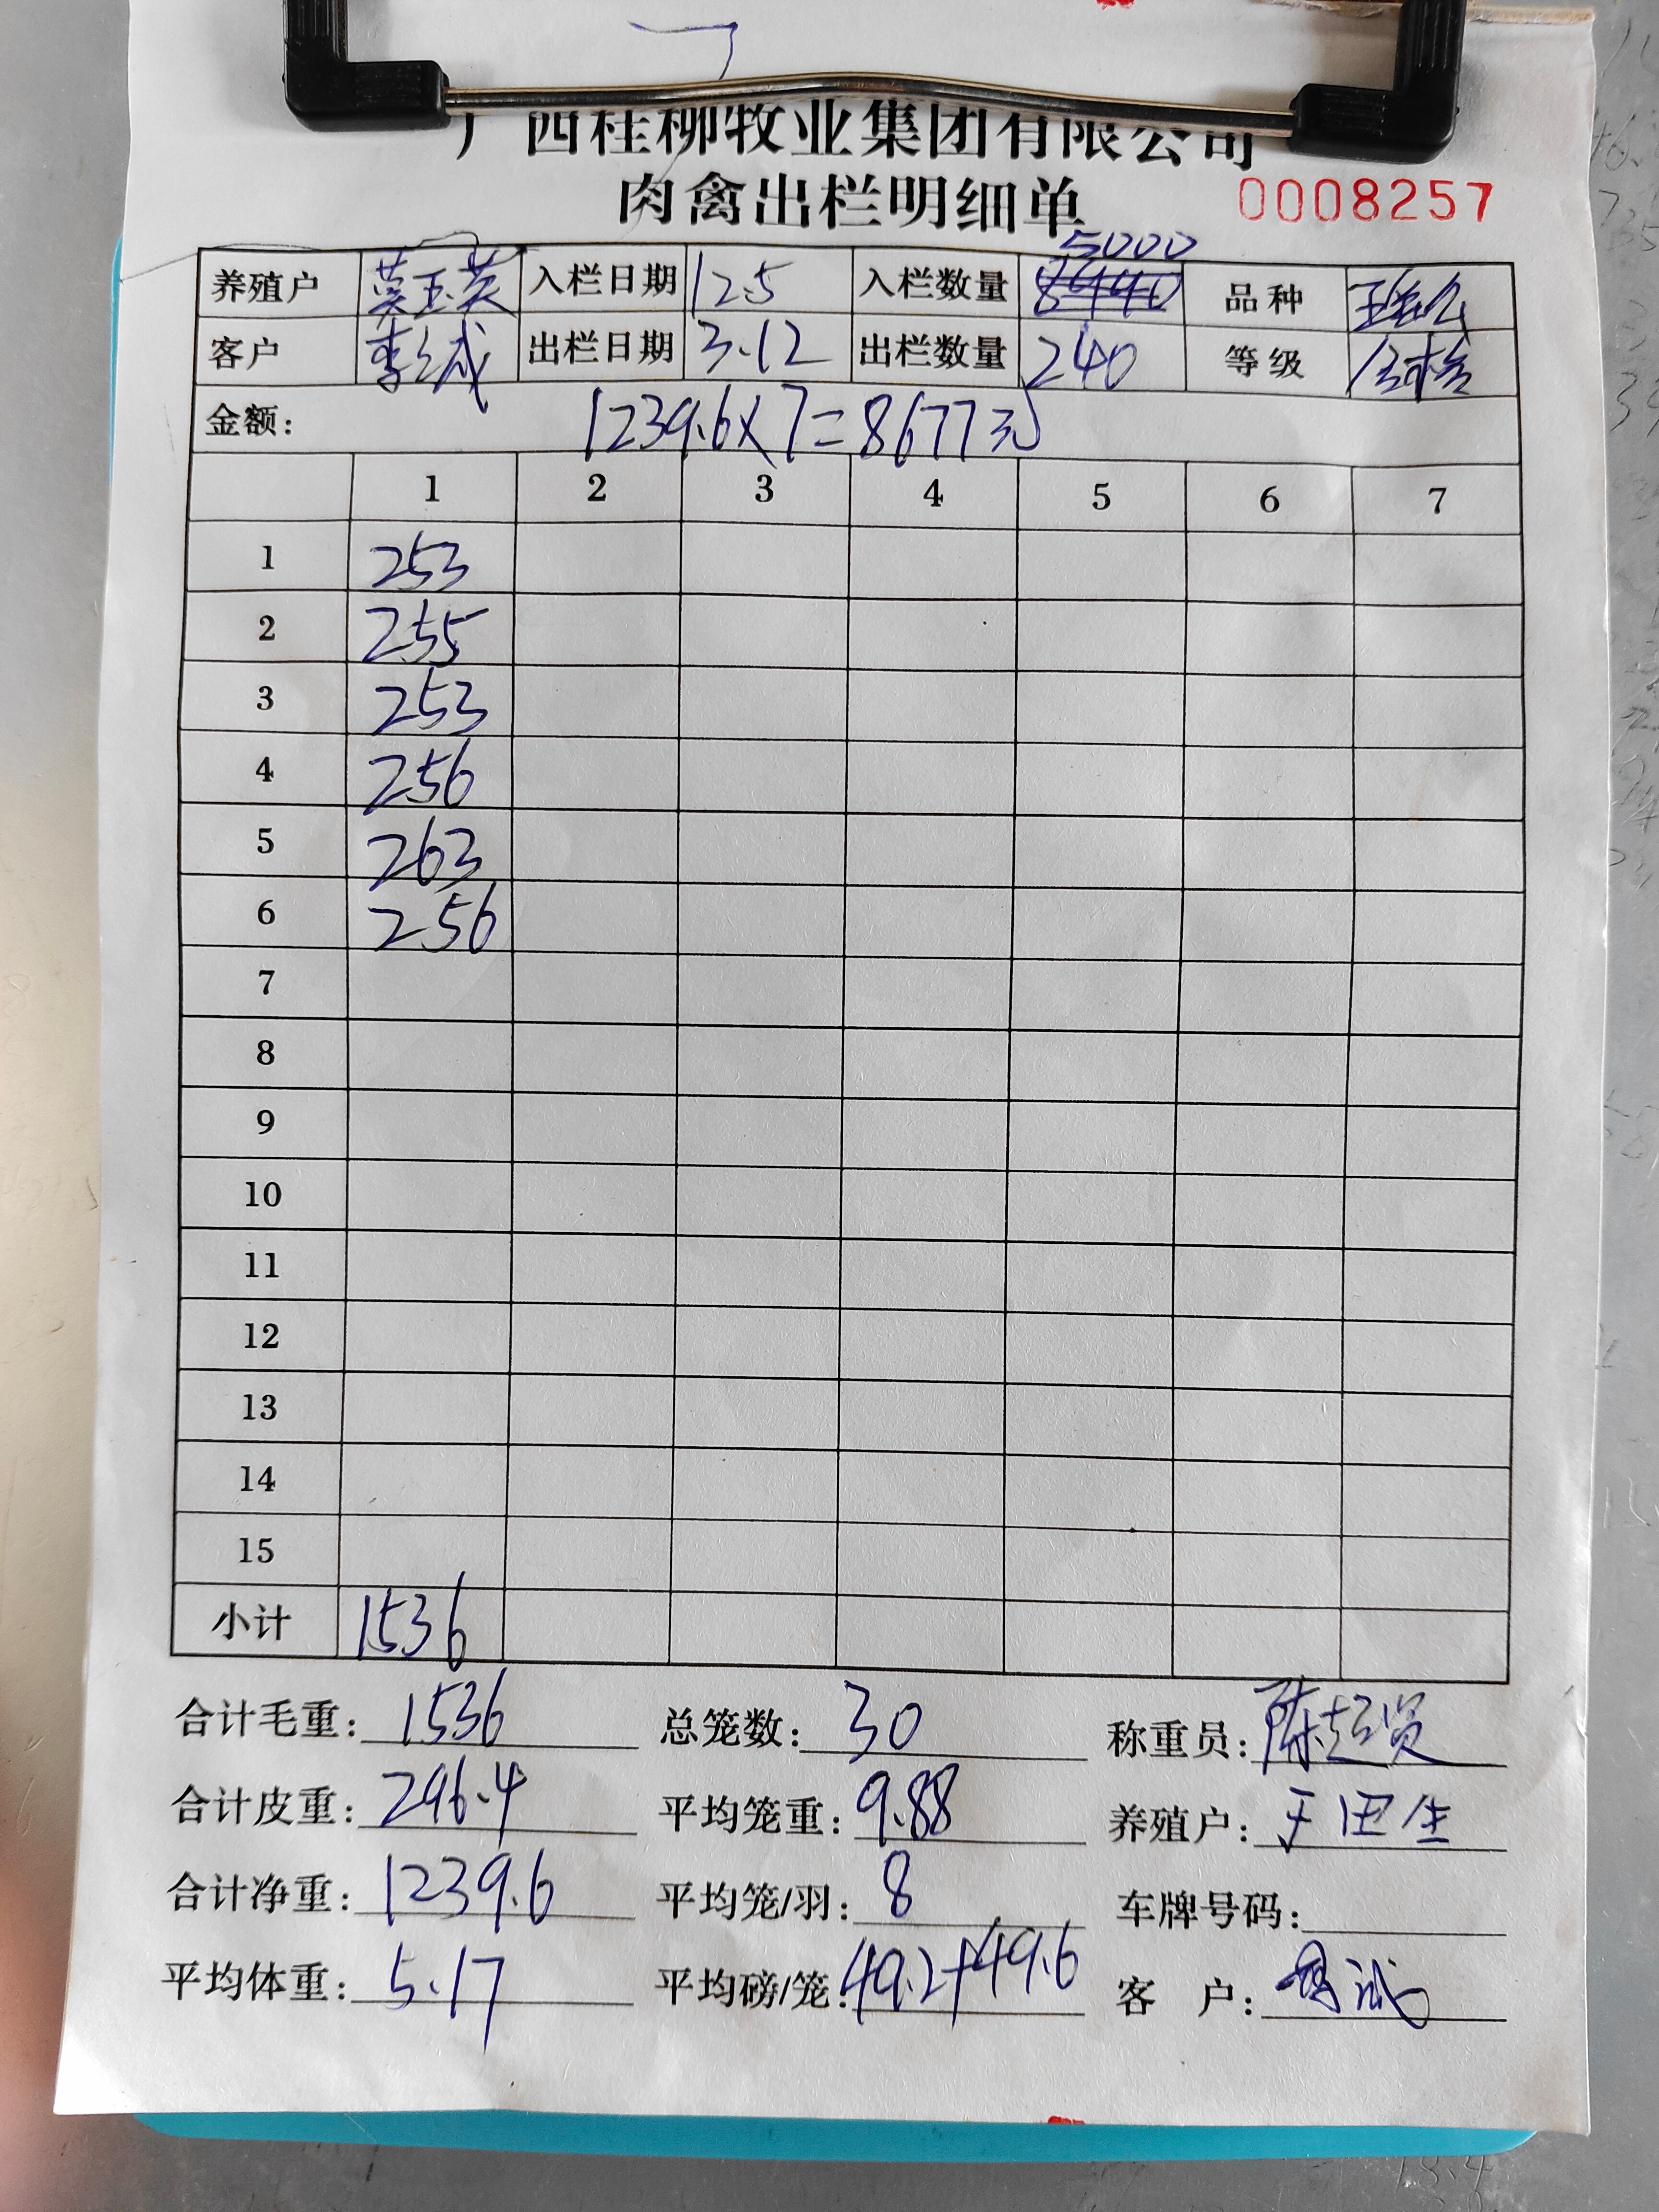 广西桂柳牧业集团有限公司
肉禽出栏明细单 0008257
5000
养殖户 莫玉英 入栏日期 12.5 入栏数量 品种
客户 出栏日期 3.12 出栏数量 240 等级
金额: 1239.6×7=8677元
1 2 3 4 5 6 7
1 253
2 255
3 253
4 256
5 263
6 256
7
8
9
10
11
12
13
14
15
小计 1536
合计毛重: 1536 总笼数: 30 称重员: 陈超贤
合计皮重: 296.4 平均笼重: 9.88 养殖户:
合计净重: 1239.6 平均笼/羽: 8 车牌号码:
平均体重: 5.17 平均磅/笼: 49.2+49.6 客户: